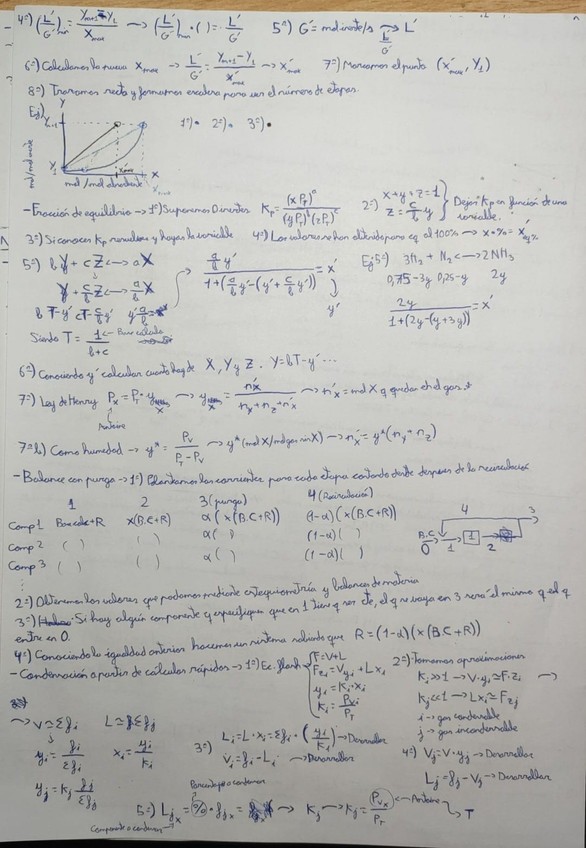 4º) (L'/G')min = (Ym+1 - Y1)/Xmax → (L'/G')min · ( ) = L'/G'   5º) G' = mol inerte/s → L'
6º) Calculamos la nueva Xmax → L'/G' = (Ym+1 - Y1)/X'max → X'max   7º) Marcamos el punto (X'max, Y1)
8º) Trazamos recta y formamos escalera para ver el número de etapas.
Ej)
Y
Ym+1
Y1
mol/mol inerte
X
X'max
Xmax
mol/mol absorbente
1º)• 2º)• 3º)•
- Fracción de equilibrio → 1º) Suponemos 0 inertes Kp = (x PT)^a/((y PT)^b (z PT)^c)   2º) x+y+z=1 z = c/b y } Dejar Kp en función de una variable.
3º) Si conoces Kp resuelves y hayas la variable   4º) Los valores se han obtenido para eq al 100% → x·% = x'eq%
5º) bY + cZ ↔ aX
Y + c/b Z ↔ a/b X
bT-y' cT- c/b y' y' a/b
Siendo T = 1/(b+c) ← Base cálculo
(a/b y')/(1+(a/b y' - (y' + c/b y'))) = x' → y'
Ej 5º) 3H2 + N2 ↔ 2NH3
0,75-3y 0,25-y 2y
2y/(1+(2y-(y+3y))) = x'
6º) Conociendo y' calcular cuanto hay de X, Y y Z. Y = bT-y' ...
7º) Ley de Henry Px = PT · y → y = n'x/(nx + nz + n'x) → n'x = mol X q quedan en el gas.
Antoine
7º b) Como humedad → y* = Pv/(PT - Pv) → y* (mol X/mol gas sin X) → n'x = y*(ny + nz)
- Balance con purga → 1º) Planteamos las corrientes para cada etapa contando desde después de la recirculación
1 2 3 (purga) 4 (Recirculación)
Comp 1 Base calc + R x(B.C+R) α(x(B.C+R)) (1-α)(x(B.C+R))
Comp 2 ( ) ( ) α( ) (1-α)( )
Comp 3 ( ) ( ) α( ) (1-α)( )
B.C 0 1 1 2 4 3
2º) Obtenemos los valores que podamos mediante estequiometría y balances de materia
3º) Si hay algún componente q especifiquen que en 1 tiene q ser cte, el q se vaya en 3 será el mismo q el q
entre en 0.
4º) Conociendo la igualdad anterior hacemos un sistema sabiendo que R = (1-α)(x(B.C+R))
- Condensación a partir de cálculos rápidos → 1º) Ec. flash { F = V+L
Fzi = Vyi + Lxi
yi = Ki · xi
Ki = Pvi/PT
2º) Tomamos aproximaciones
Ki >> 1 → V·yi ≃ F·zi →
Kj << 1 → Lxj ≃ Fzj
i → gas condensable
j → gas incondensable
→ V ≃ Σfi   L ≃ Σfj
yi = fi/Σfi   xi = yi/Ki
yj = Kj fj/Σfj
3º) Li = L·xi = Σfj · (yi/Ki) → Desarrollar
Vi = fi - Li → Desarrollar
4º) Vj = V·yj → Desarrollar
Lj = fj - Vj → Desarrollar
Porcentaje a condensar
5º) Ljx = % · fjx → Kj → Kj = Pvx/PT ← Antoine → T
Componente a condensar